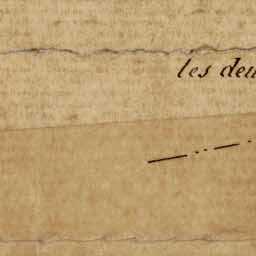 les deu